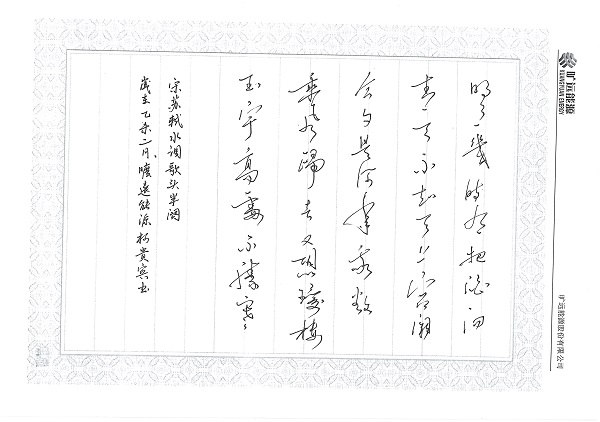 旷远能源
KUANGYUAN ENERGY
旷远能源股份有限公司
明月幾时有把酒问
青天不知天上宫阙
今夕是何年我欲
乘风归去又恐琼楼
玉宇高处不胜寒
宋苏轼水调歌头半阕
岁在乙未二月、旷远能源 贵宾书